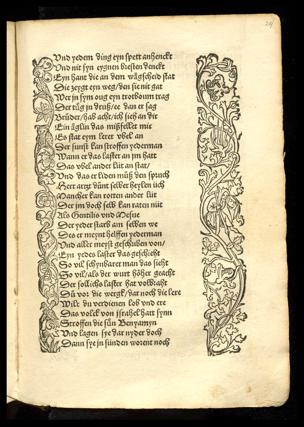 29
Vnd yedem ding eyn spett anhenckt
Vnd nit syn eygnen bresten denckt
Eyn hant die an dem wägscheid stat
Die zeygt eyn weg / den sie nit gat
Wer jn sym oug eyn trotboum trag
Der tüg jn druß / ee dan er sag
Brůder / hab acht / ich sich an dir
Ein äglin das mißfellet mir
Es stat eym lerer vbel an
Der sunst kan stroffen yederman
Wann er das laster an jm hatt
Das vbel ander lüt an stat /
Vnd das er liden můß den spruch
Herr artzt důnt selber heylen üch
Mancher kan rotten ander lüt
Der jm doch selb kan raten nüt
Als Gentilis vnd Mesue
Der yeder starb am selben we
Des er meynt helffen yederman
Vnd aller meyst geschriben von /
Eyn yedes laster das geschicht
So vil schynbarer man das sicht
So vil / als der wurt höher geacht
Der sollichs laster hat volbracht
Dů vor die werck / dar noch die lere
Wilt du verdienen lob vnd ere
Das volck von jsrahel hatt synn
Stroffen die sün Benyamyn
Vnd lagen sye dar nyder doch
Dann sye jn sünden worent noch